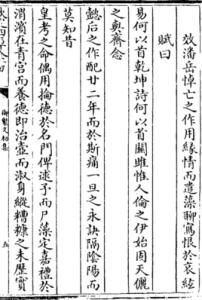 效潘岳悼亡之作用緣情而遣藻聊寫恨於哀絃
賦曰
易何以首乾坤詩何以首關雎惟人倫之伊始固天儷
之與齊念
懿后之作配廿二年而於斯痛一旦之永訣隔陰陽而
莫知昔
皇考之命偶用掄德於名門俾逑予而尸藻定嘉禮於
渭濱在青宮而養德即治壼而淑身縱糟糠之未歷實
御製文初集
五